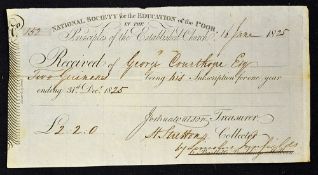 NATIONAL SOCIETY for the EDUCATION of the POOR
IN THE
Principles of the Established Church
No 152 16 June 1825
Received of George Courthope Esq
Two Guineas being his Subscription for one year
ending 31st Decr 1825
£2.2.0 Joshua Watson Treasurer
Collector
by